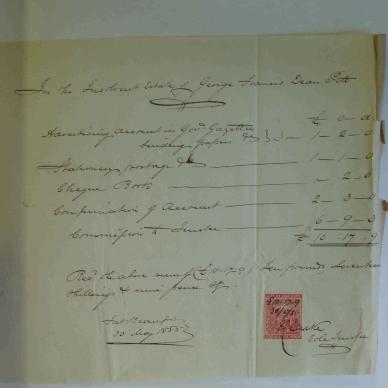 In the Insolvent Estate of George Francis Dean Pitt
£ s d
Advertising Account in Govt Gazette
binding papers &c } 1 - 2 - 0
Stationery, postage &c 1 - 1 - 0
Cheque Book - 2 - 6
Compensation of Account 2 - 3 - 0
Commission to Trustee 6 - 9 - 3
£ 10 - 17 - 9
Recd the above sum of £10-17-9 / Ten pounds Seventeen
Shillings & nine pence Stg.
Fort Beaufort
30 May 1885
£10-17-9
30/5/85
Sole Trustee